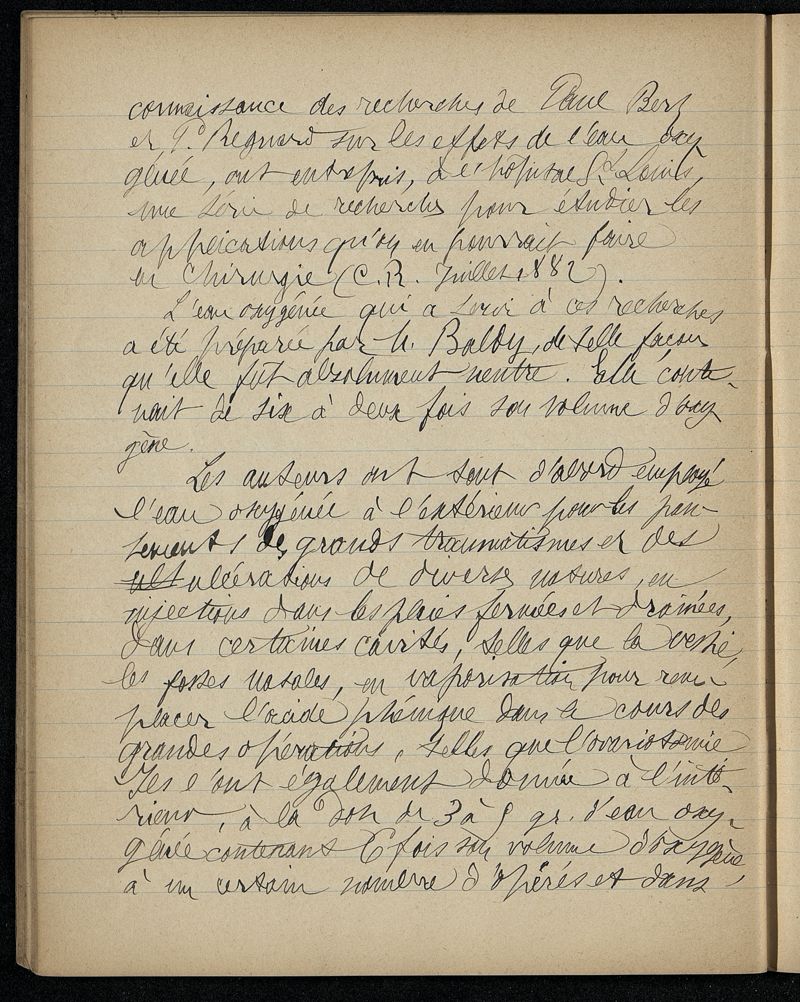 connaissance des recherches de Paul Bert
et P. Regnard sur les effets de l'eau oxy
génée, ont entrepris, à l'hôpital St Louis,
une série de recherches pour étudier les
applications qu'on en pourrait faire
en chirurgie (C.R. Juillet 1882).
L'eau oxygénée qui a servi à ces recherches
a été préparée par M. Baldy, de telle façon
qu'elle fût absolument neutre. Elle conte-
nait de six à deux fois son volume d'oxy
gène.
Les auteurs ont tout d'abord employé
l'eau oxygénée à l'extérieur pour les pan-
sements de grands traumatismes et des
ulcérations de diverses natures, en
injections dans les plaies fermées et drainées,
dans certaines cavités, telles que la vessie,
les fosses nasales, en vaporisation pour rem-
placer l'acide phénique dans le cours des
grandes opérations, telles que l'ovariotomie
Ils l'ont également donnée à l'inté-
rieur, à la dose de 3 à 5 gr. d'eau oxy-
génée contenant 6 fois son volume d'oxygène,
à un certain nombre d'opérés et dans